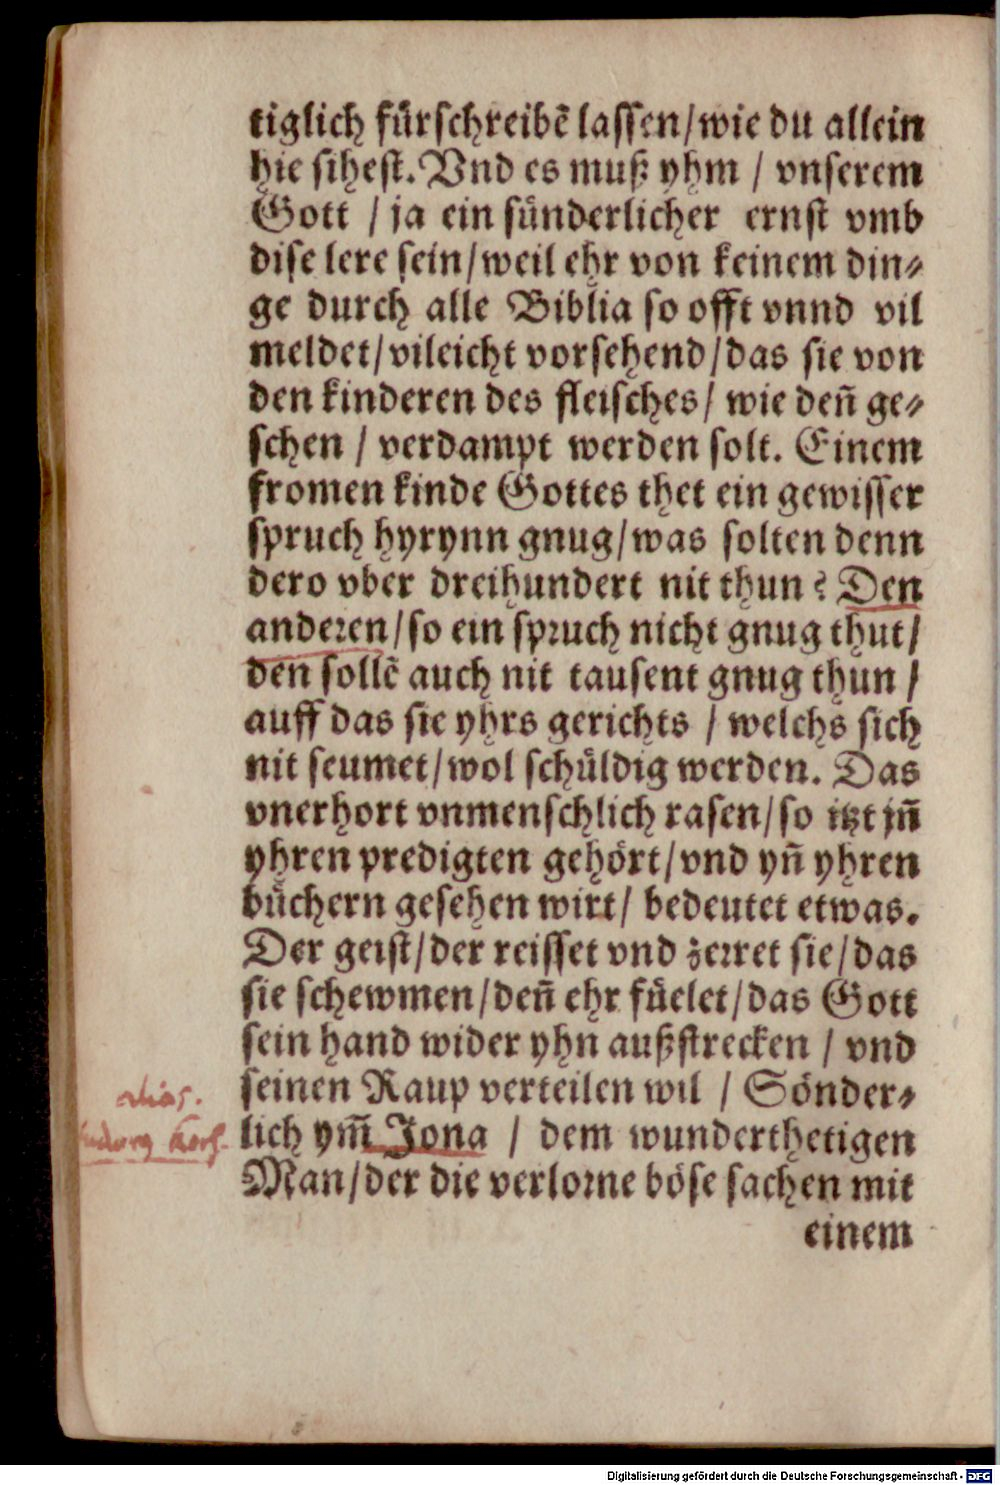 tiglich fürschreibē lassen/wie du allein
hie sihest. Vnd es muß yhm / vnserem
Gott / ja ein sünderlicher ernst vmb
dise lere sein/weil ehr von keinem din⸗
ge durch alle Biblia so offt vnnd vil
meldet/vileicht vorsehend/das sie von
den kinderen des fleisches/ wie deñ ge⸗
schen / verdampt werden solt. Einem
fromen kinde Gottes thet ein gewisser
spruch hyrynn gnug/was solten denn
dero vber dreihundert nit thun? Den
anderen/so ein spruch nicht gnug thut/
den sollē auch nit tausent gnug thun /
auff das sie yhrs gerichts / welchs sich
nit seumet/wol schüldig werden. Das
vnerhort vnmenschlich rasen/so itzt jñ
yhren predigten gehört/vnd yñ yhren
büchern gesehen wirt/ bedeutet etwas.
Der geist/der reisset vnd zerret sie/das
sie schewmen/deñ ehr füelet/das Gott
sein hand wider yhn außstrecken / vnd
seinen Raup verteilen wil / Sönder⸗
alias.
lich ym̄ Jona / dem wunderthetigen
Man/der die verlorne böse sachen mit
einem
Digitalisierung gefördert durch die Deutsche Forschungsgemeinschaft - DFG